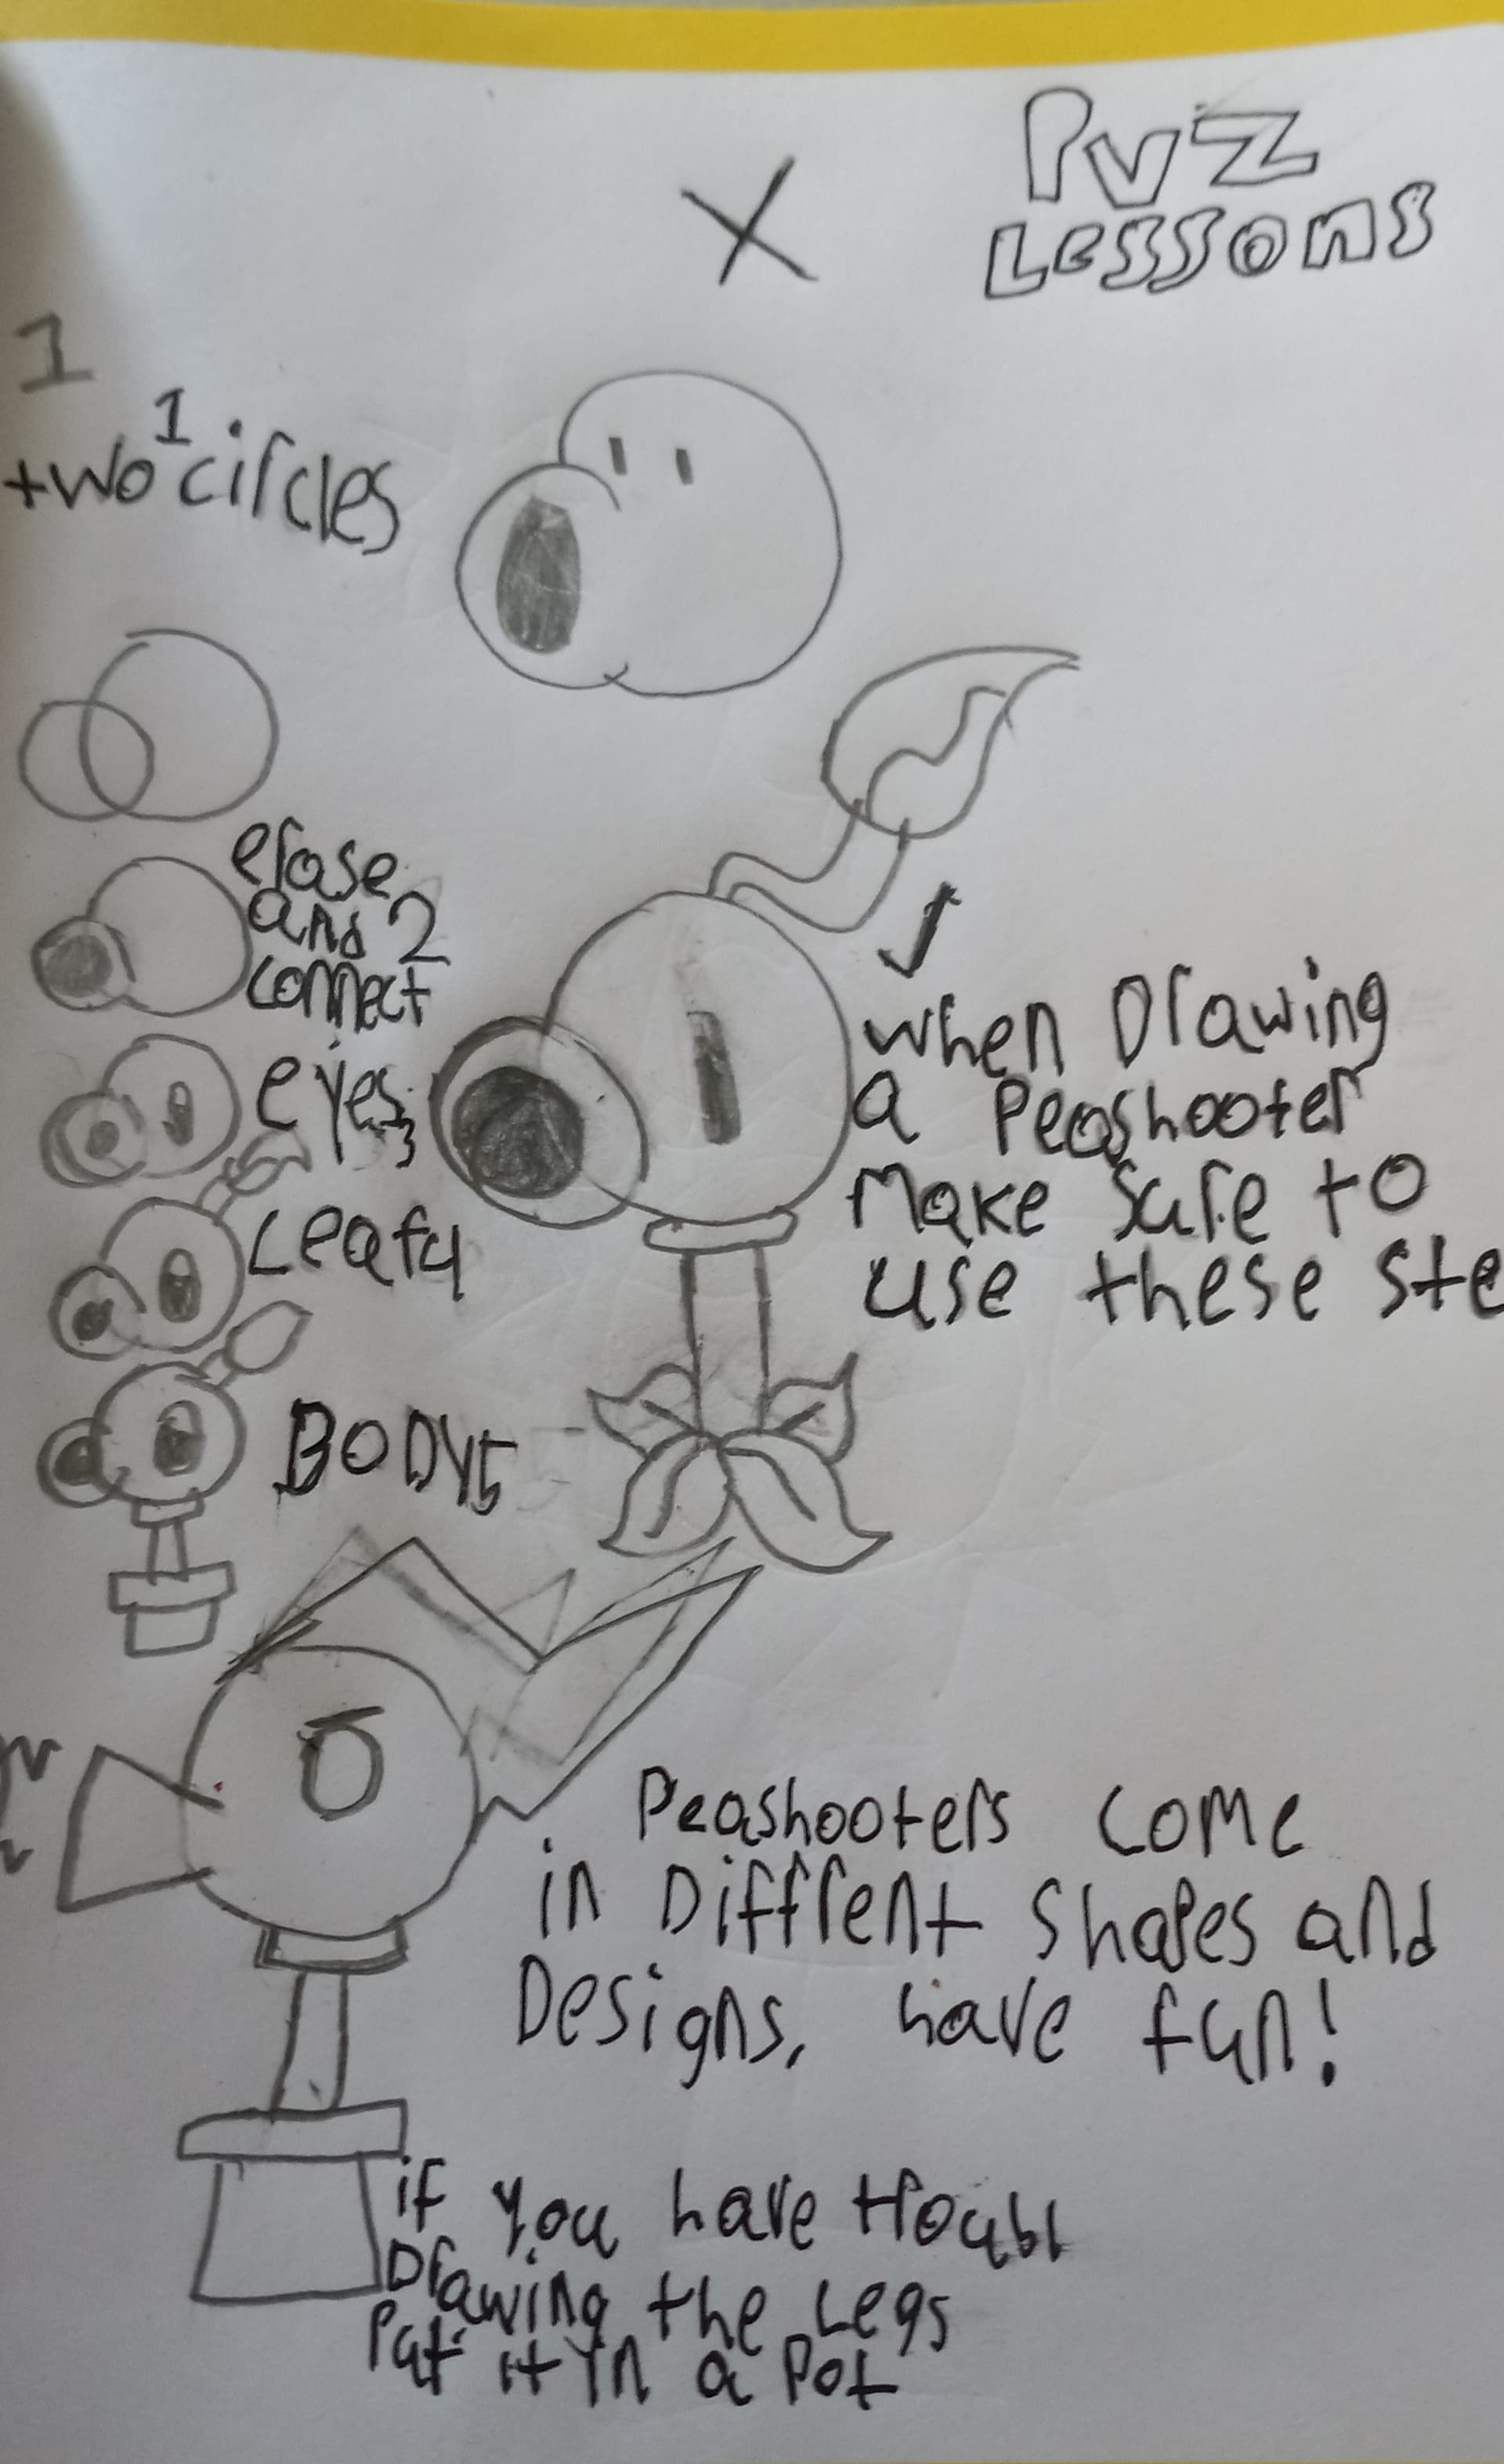 PVZ
Lessons
1
two circles 1
erase
and 2
connect
eyes 3
Leaf 4
when Drawing
a Peashooter
Make Sure to
use these ste
BODY 5
Peashooters come
in Diffrent shapes and
Designs, have fun!
if you have troubl
Drawing the Legs
Put it in a Pot